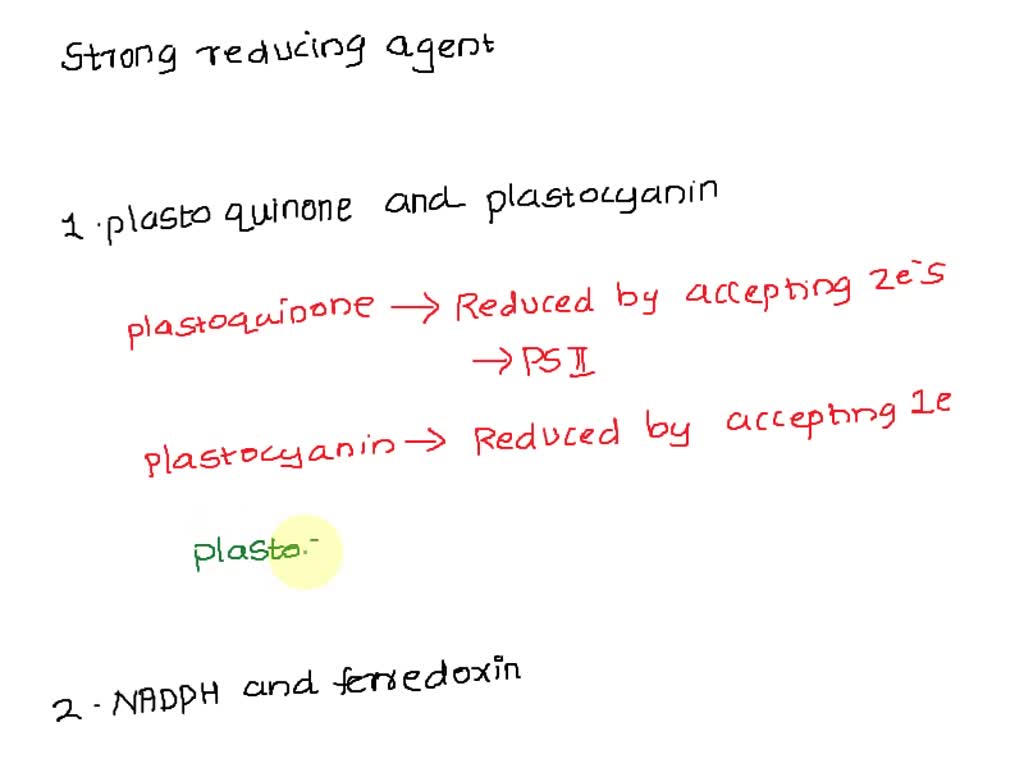 Strong reducing agent
1. plasto quinone and plastocyanin
plastoquinone → Reduced by accepting 2e⁻s
→ PS II
plastocyanin → Reduced by accepting 1e
plasto
2. NADPH and ferredoxin